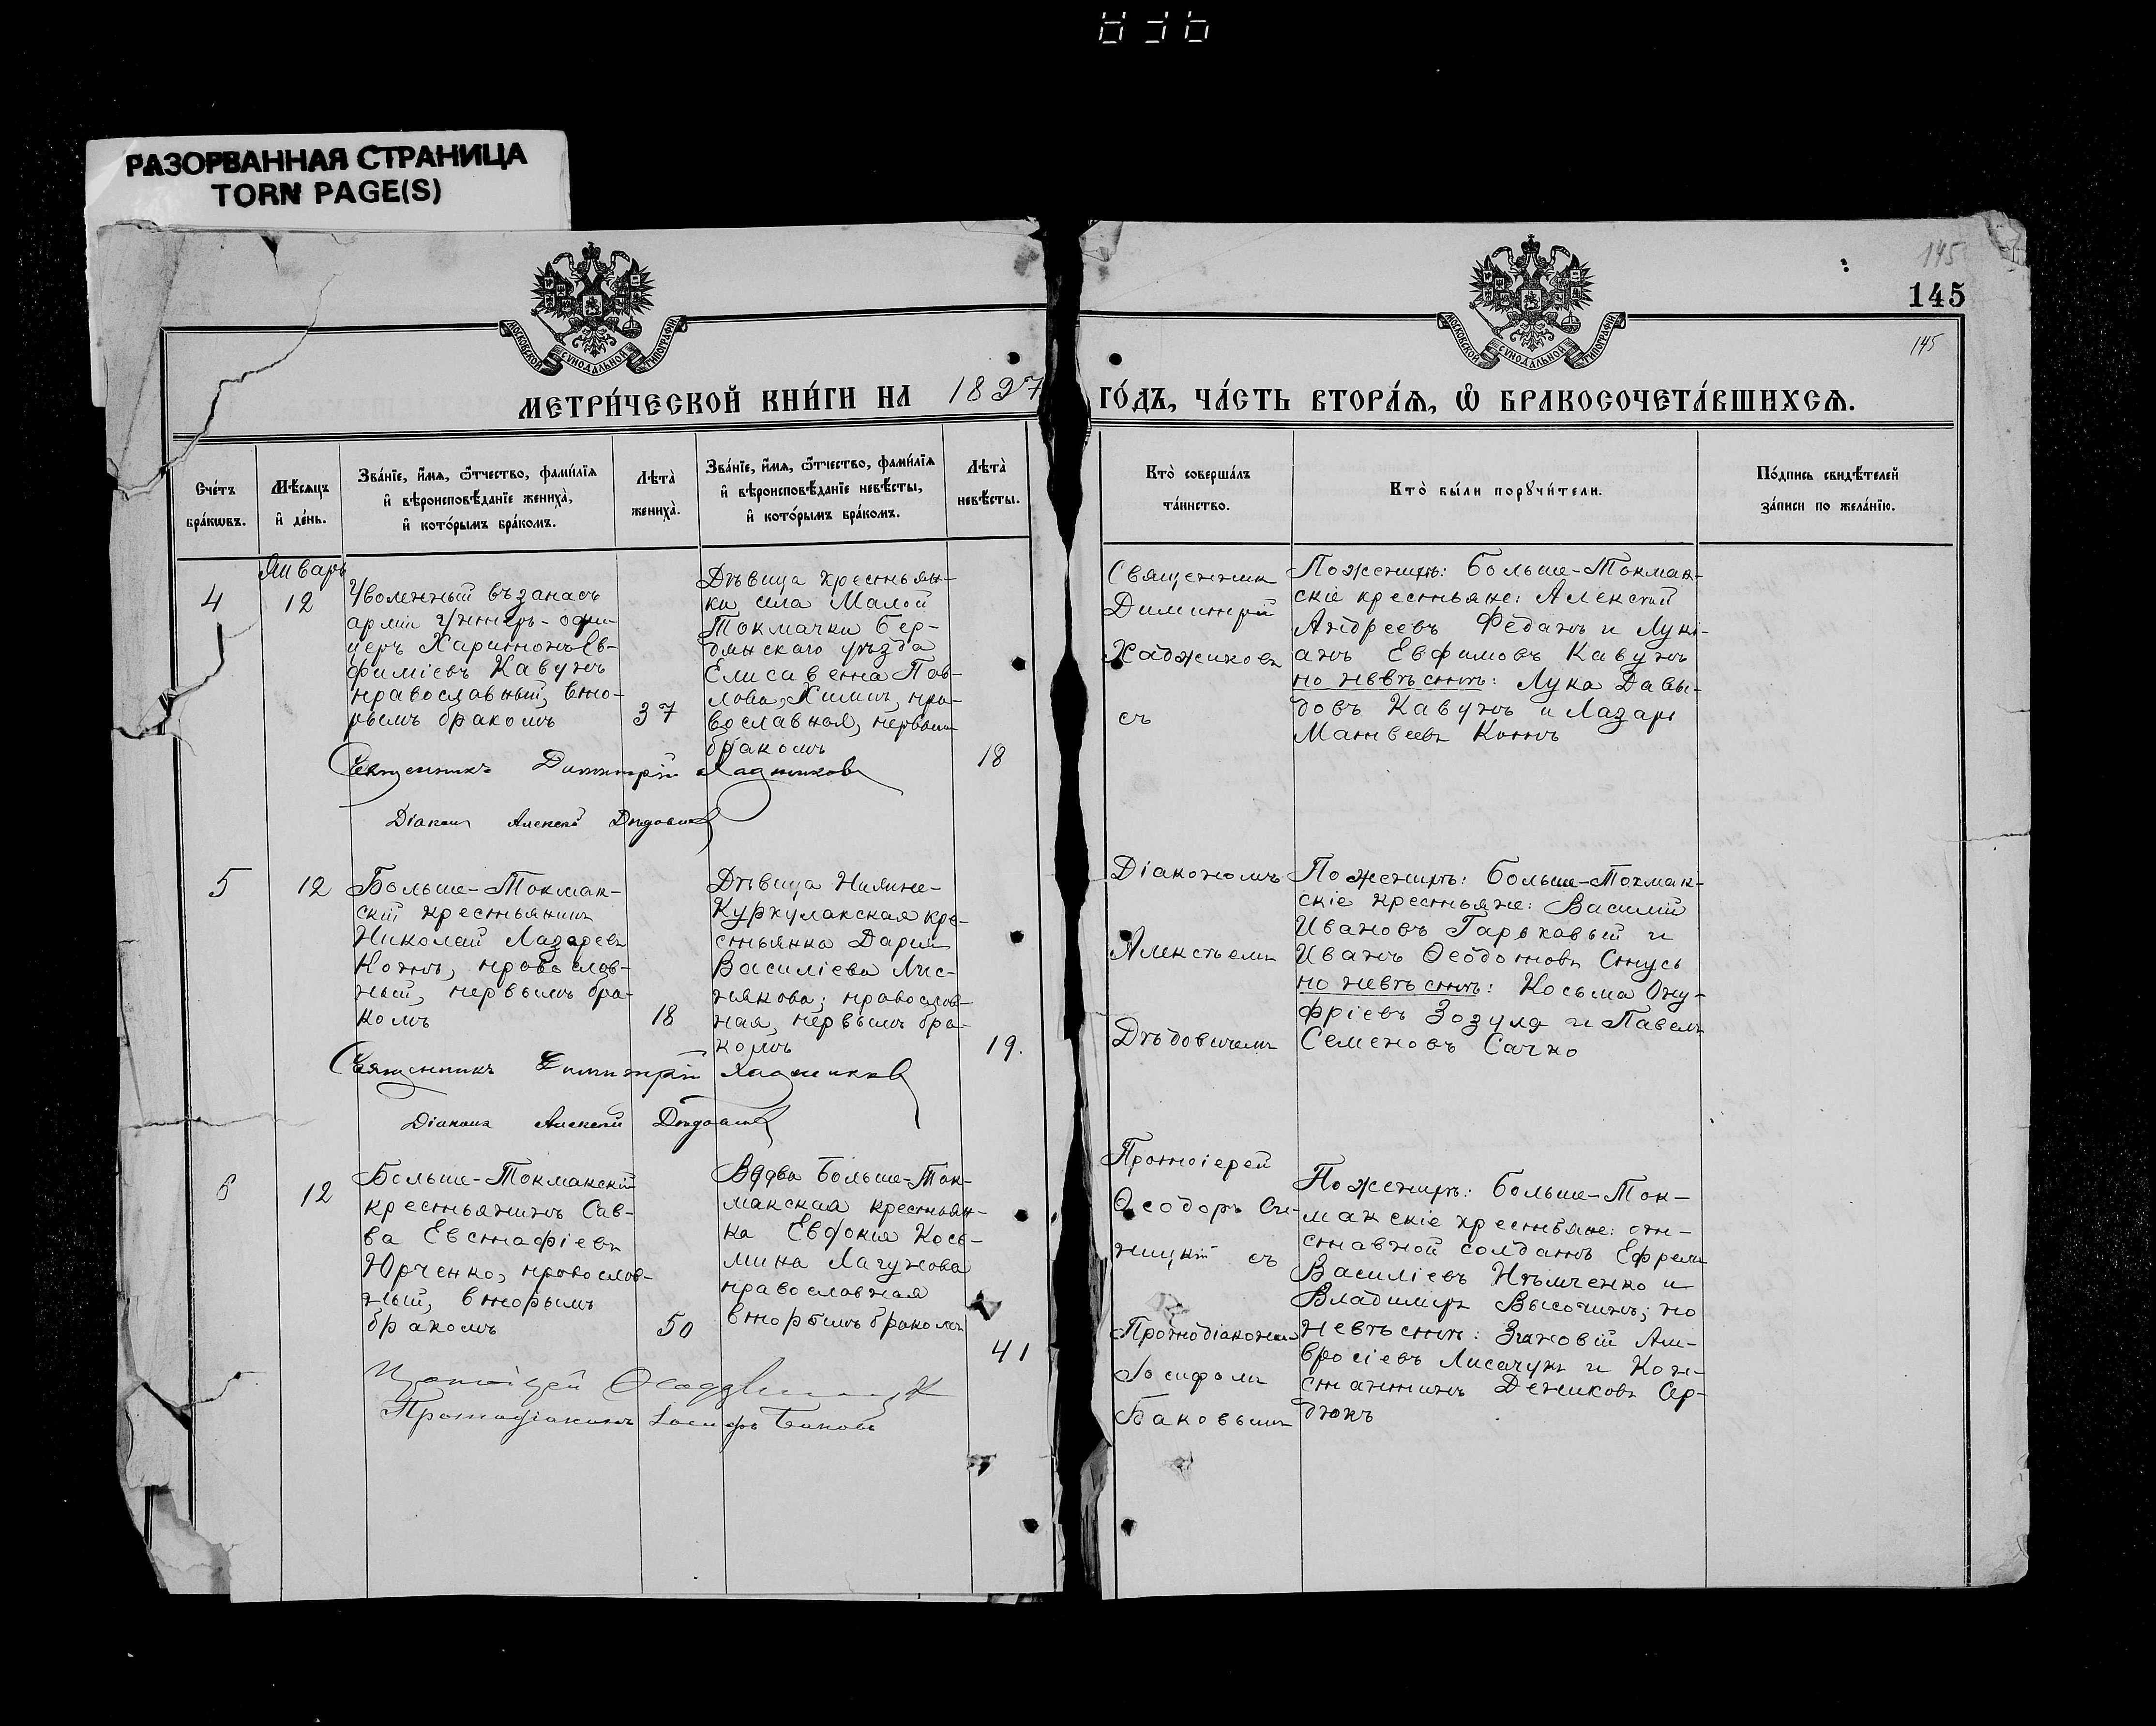 РАЗОРВАННАЯ СТРАНИЦА
TORN PAGE(S)
145
145
145
МОСКОВСКОЙ СѴНОДАЛЬНОЙ ТИПОГРАФІИ
МОСКОВСКОЙ СѴНОДАЛЬНОЙ ТИПОГРАФІИ
МЕТРИ́ЧЕСКОЙ КНИ́ГИ НА 1897 ГО́ДЪ, ЧА́СТЬ ВТОРА́Ѧ, Ѡ҆ БРАКОСОЧЕТА́ВШИХСѦ.
Сче́тъ
бра́кѡвъ.
Мѣ́сяцъ
и҆ де́нь.
Зва́нїе, и҆́мѧ, ѻ҆́тчество, фами́лїѧ
и҆ вѣроисповѣ́данїе жениха̀,
и҆ кото́рымъ бра́комъ.
Лѣ́та̀
жениха̀.
Зва́нїе, и҆́мѧ, ѻ҆́тчество, фами́лїѧ
и҆ вѣроисповѣ́данїе невѣ́сты,
и҆ кото́рымъ бра́комъ.
Лѣ́та̀
невѣ́сты.
Кто̀ соверша́лъ
та́инство.
Кто̀ бы́ли порꙋчи́тели.
По́дпись свидѣ́телей
за́писи по жела́нїю.
Январь
4
12
Уволенный въ запасъ
арміи унтеръ-офи-
церъ Харитонъ Ев-
фиміевъ Кавунъ
православный, вто-
рымъ бракомъ
37
Дѣвица крестьян-
ка села Малой
Токмачки Бер-
дянскаго уѣзда
Елисавета Пав-
лова, пра-
вославная, первымъ
бракомъ
18
Священник
Димитрій
Хаджиковъ
съ
По женихѣ: Больше-Токмак-
скіе крестьяне: Алексѣй
Андреевъ Феданъ и Луки-
анъ Евфимовъ Кавунъ
по невѣстѣ: Лука Давы-
довъ Кавунъ и Лазарь
Матвеевъ Котъ
Священникъ Димитрій Хаджиковъ
Діаконъ Алексѣй Дѣдовичъ
5
12
Больше-Токмак-
скій крестьянинъ
Николай Лазаревъ
Котъ, православ-
ный, первымъ бра-
комъ
18
Дѣвица Нижне-
Куркулакская кре-
стьянка Дарія
Василіева Лис-
някова; православ-
ная, первымъ бра-
комъ
19.
Діакономъ
Алексѣемъ
Дѣдовичемъ
По женихѣ: Больше-Токмак-
скіе крестьяне: Василій
Ивановъ Гарькавый и
Иванъ Ѳеодотовъ Стусь
по невѣстѣ: Косьма Ону-
фріевъ Зозуля и Павелъ
Семеновъ Сачко
Священникъ Димитрій Хаджиковъ
Діаконъ Алексѣй Дѣдовичъ
6
12
Больше-Токмакскій
крестьянинъ Сав-
ва Евстафіевъ
Юрченко, православ-
ный, вторымъ
бракомъ
50
Вдова Больше-Ток-
макская крестьян-
ка Евдокия Кось-
мина Лагунова
православная
вторымъ бракомъ
41
Протоіерей
Ѳеодоръ Си-
ницкій съ
Протодіакономъ
Іосифомъ
Баковымъ
По женихѣ: Больше-Ток-
макскіе крестьяне: от-
ставной солдатъ Ефремъ
Василіевъ Нѣмченко и
Владимиръ Высочинъ; по
невѣстѣ: Зиновій Ам-
вросіевъ Лисачукъ и Кон-
стантинъ Дениковъ Сер-
дюкъ
Протоіерей
Протодіаконъ Іосифъ Баковъ